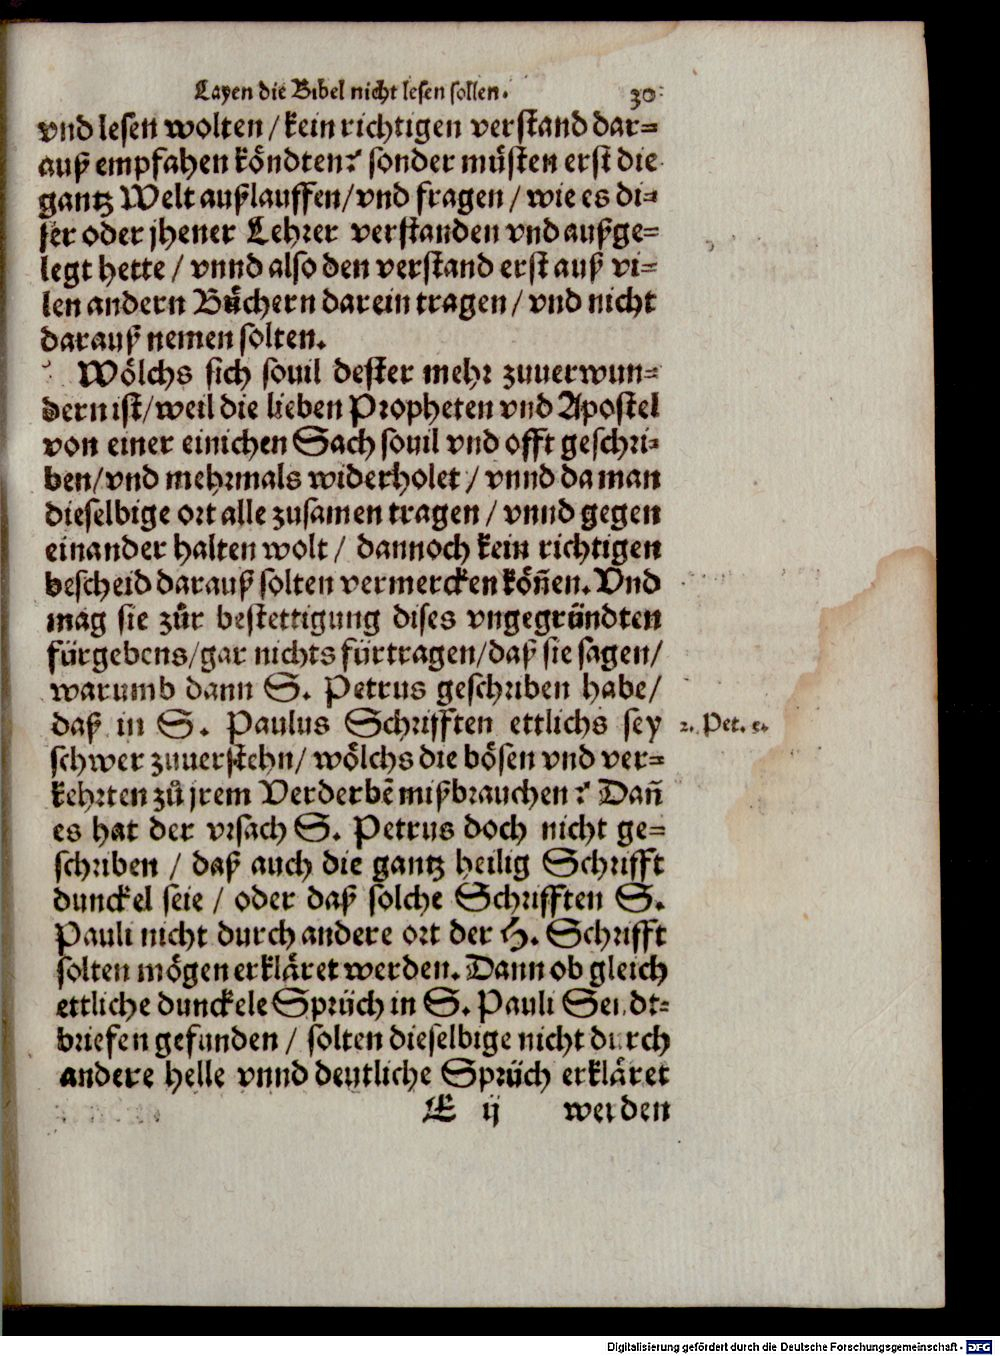 Layen die Bibel nicht lesen sollen. 30
vnd lesen wolten / kein richtigen verstand dar=
auß empfahen köndten? sonder müsten erst die
gantz Welt außlauffen / vnd fragen / wie es di=
ser oder jhener Lehrer verstanden vnd außge=
legt hette / vnnd also den verstand erst auß vi=
len andern Büchern darein tragen / vnd nicht
darauß nemen solten.
Wölchs sich souil dester mehr zuuerwun=
dern ist / weil die lieben Propheten vnd Apostel
von einer einichen Sach souil vnd offt geschri=
ben / vnd mehrmals widerholet / vnnd da man
dieselbige ort alle zusamen tragen / vnnd gegen
einander halten wolt / dannoch kein richtigen
bescheid darauß solten vermercken köñen. Vnd
mag sie zůr bestettigung dises vngegründten
fürgebens / gar nichts fürtragen / daß sie sagen /
warumb dann S. Petrus geschriben habe /
daß in S. Paulus Schrifften ettlichs sey
2. Pet. 3.
schwer zuuerstehn / wölchs die bösen vnd ver=
kehrten zů jrem Verderbẽ mißbrauchen? Dañ
es hat der vrsach S. Petrus doch nicht ge=
schriben / daß auch die gantz heilig Schrifft
dunckel seie / oder daß solche Schrifften S.
Pauli nicht durch andere ort der H. Schrifft
solten mögen erkläret werden. Dann ob gleich
ettliche dunckele Sprüch in S. Pauli Sendt=
briefen gefunden / solten dieselbige nicht durch
andere helle vnnd deutliche Sprüch erkläret
E ij werden
Digitalisierung gefördert durch die Deutsche Forschungsgemeinschaft - DFG